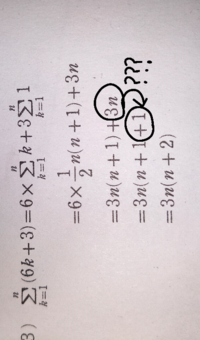 3) \sum_{k=1}^{n}(6k+3)=6×\sum_{k=1}^{n}k+3\sum_{k=1}^{n}1
=6×\frac{1}{2}n(n+1)+3n
=3n(n+1)+3n
=3n(n+1+1)
???
=3n(n+2)